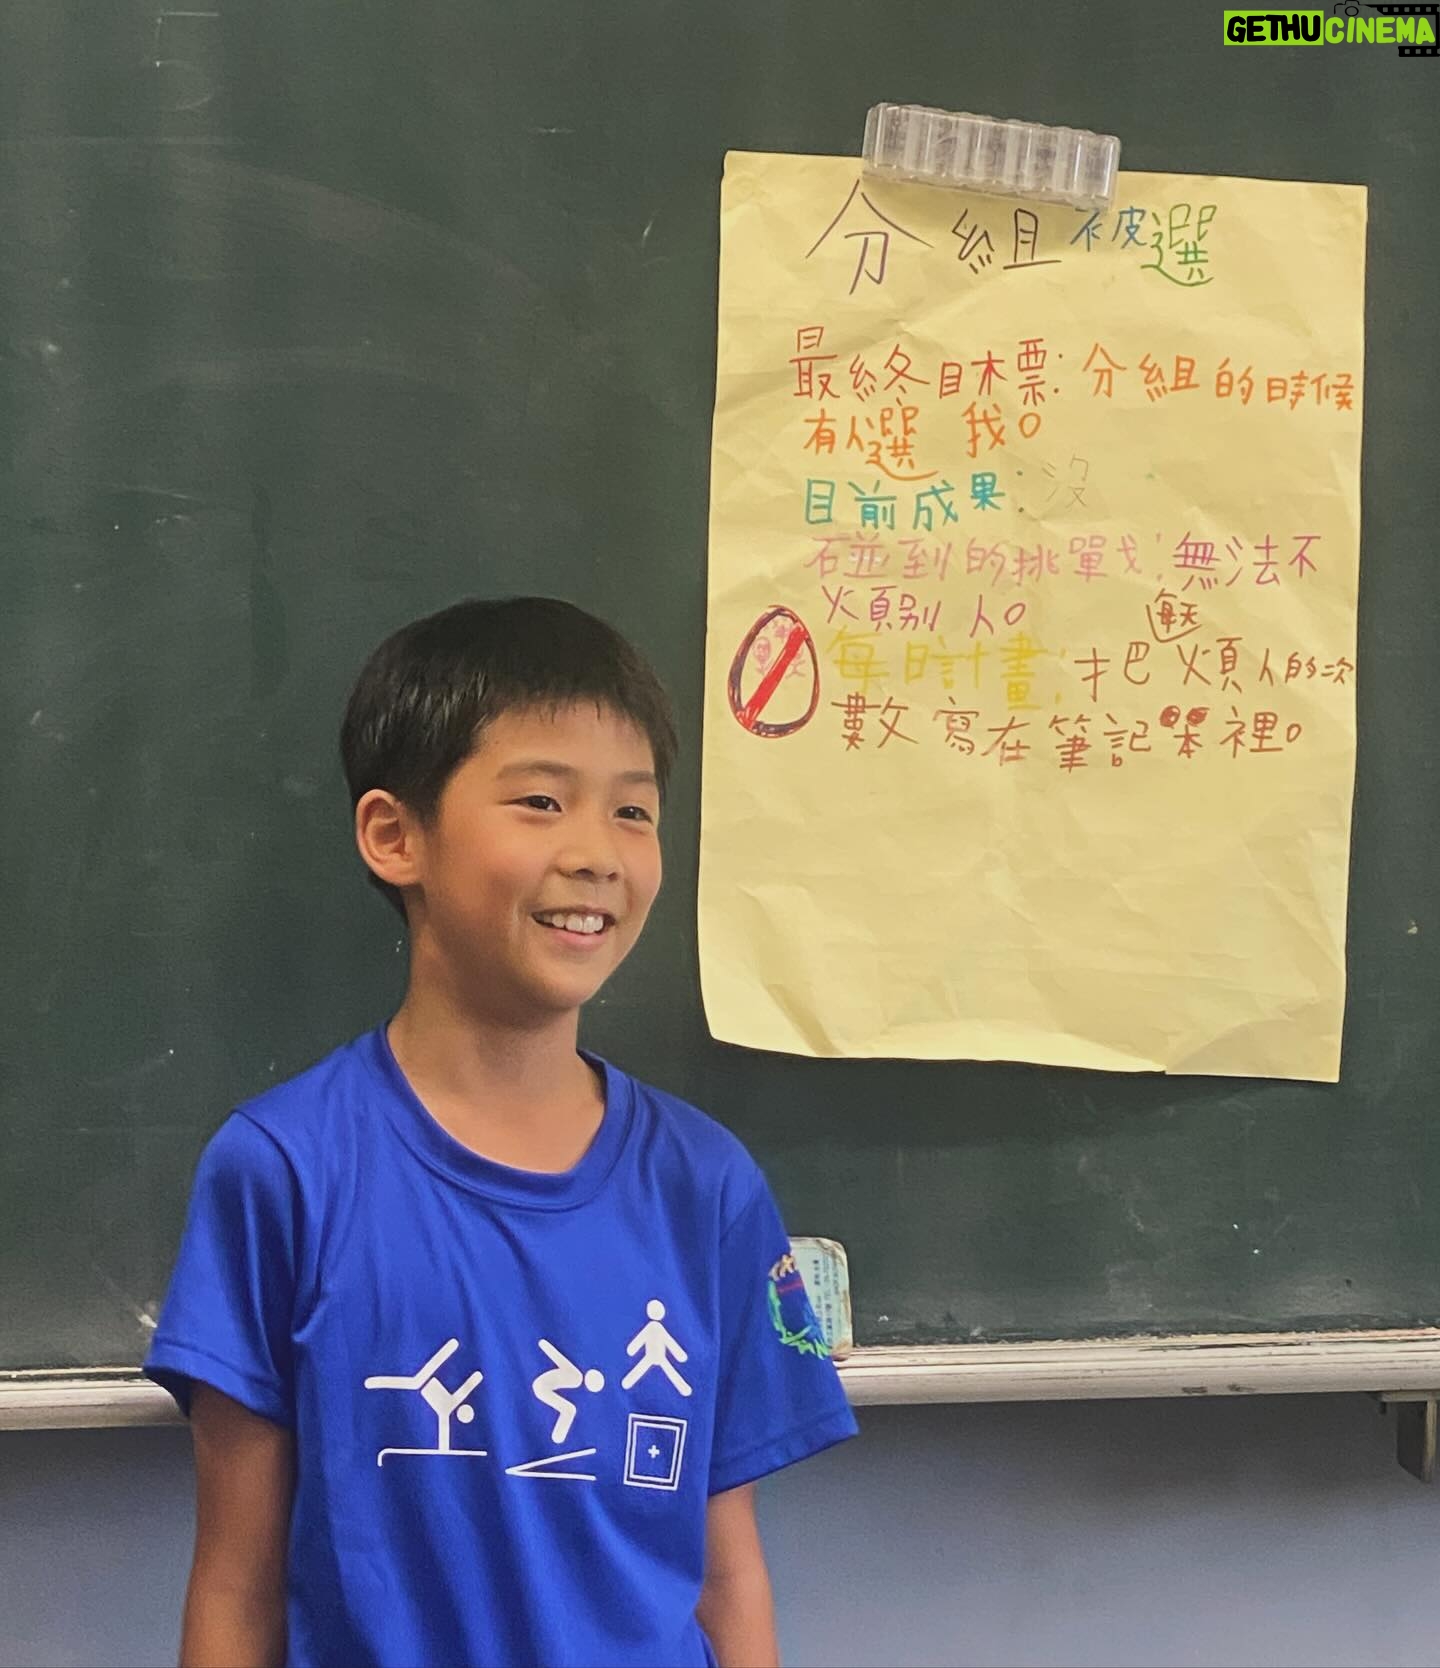 GETHUCINEMA
分組被選
最終目標:分組的時候
有人選我。
目前成果:沒
碰到的挑戰:無法不
煩別人。
每天
每日計畫:把煩人的次
數寫在筆記本裡。